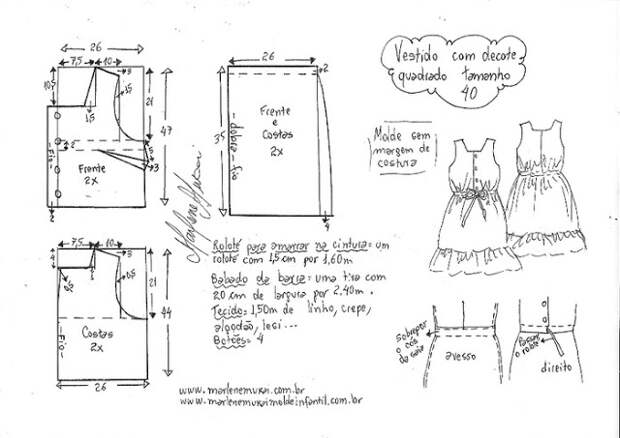 26
7,5
10
3
10,5
15
21
1,5
47
2
5
3
Fio
Frente
2x
26
2
Frente
e
Costas
2x
35
dobra - fio
4
Vestido com decote
quadrado tamanho
40
Molde sem
margem de
costura
Marlene Mukai
7,5
10
3
4
21
44
Fio
Costas
2x
26
Rolotê para amarrar na cintura = um
rolotê com 1,5 cm por 1,60m
Babado da barra = uma tira com
20 cm de largura por 2.40m.
Tecido: 1,50m de linho, crepe,
algodão, lesi...
Botões: 4
sobrepor
o cós
da saia
avesso
Passar
o rolotê
direito
www.marlenemukai.com.br
www.marlenemukaimoldeinfantil.com.br